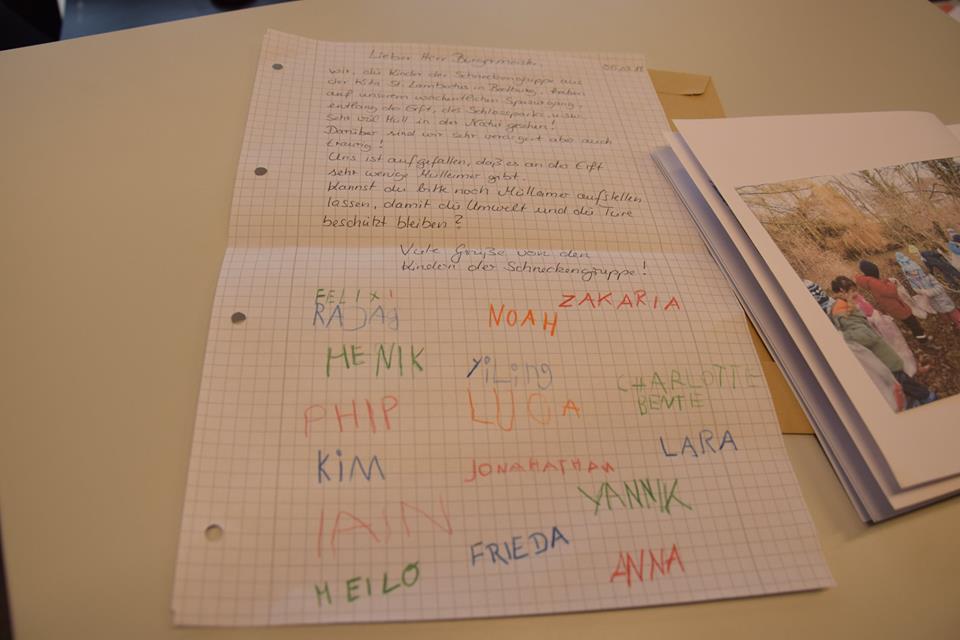 Lieber Herr Bürgermeister,
wir, die Kinder der Schneckengruppe aus
der Kita St. Lambertus in Bedburg, haben
auf unserem wöchentlichen Spaziergang,
entlang der Erft, des Schlossparks, u.s.w.
sehr viel Müll in der Natur gesehen!
Darüber sind wir sehr verärgert aber auch
traurig!
Uns ist aufgefallen, daß es an der Erft
sehr wenige Mülleimer gibt.
Kannst du bitte noch Mülleimer aufstellen
lassen, damit die Umwelt und die Tiere
beschützt bleiben?
Viele Grüße von den
Kindern der Schneckengruppe!
FELIX
ZAKARIA
NOAH
HENIK
YiLing
CHARLOTTE
PHIP
LUCA
BENTE
KiM
JONAHATHAN
LARA
IAIN
YANNIK
MEILO
FRIEDA
ANNA